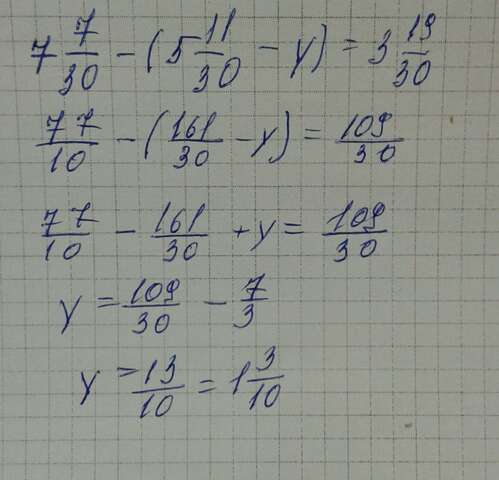 7 7/30 - (5 11/30 - y) = 3 19/30
77/10 - (161/30 - y) = 109/30
77/10 - 161/30 + y = 109/30
y = 109/30 - 7/3
y = 13/10 = 1 3/10